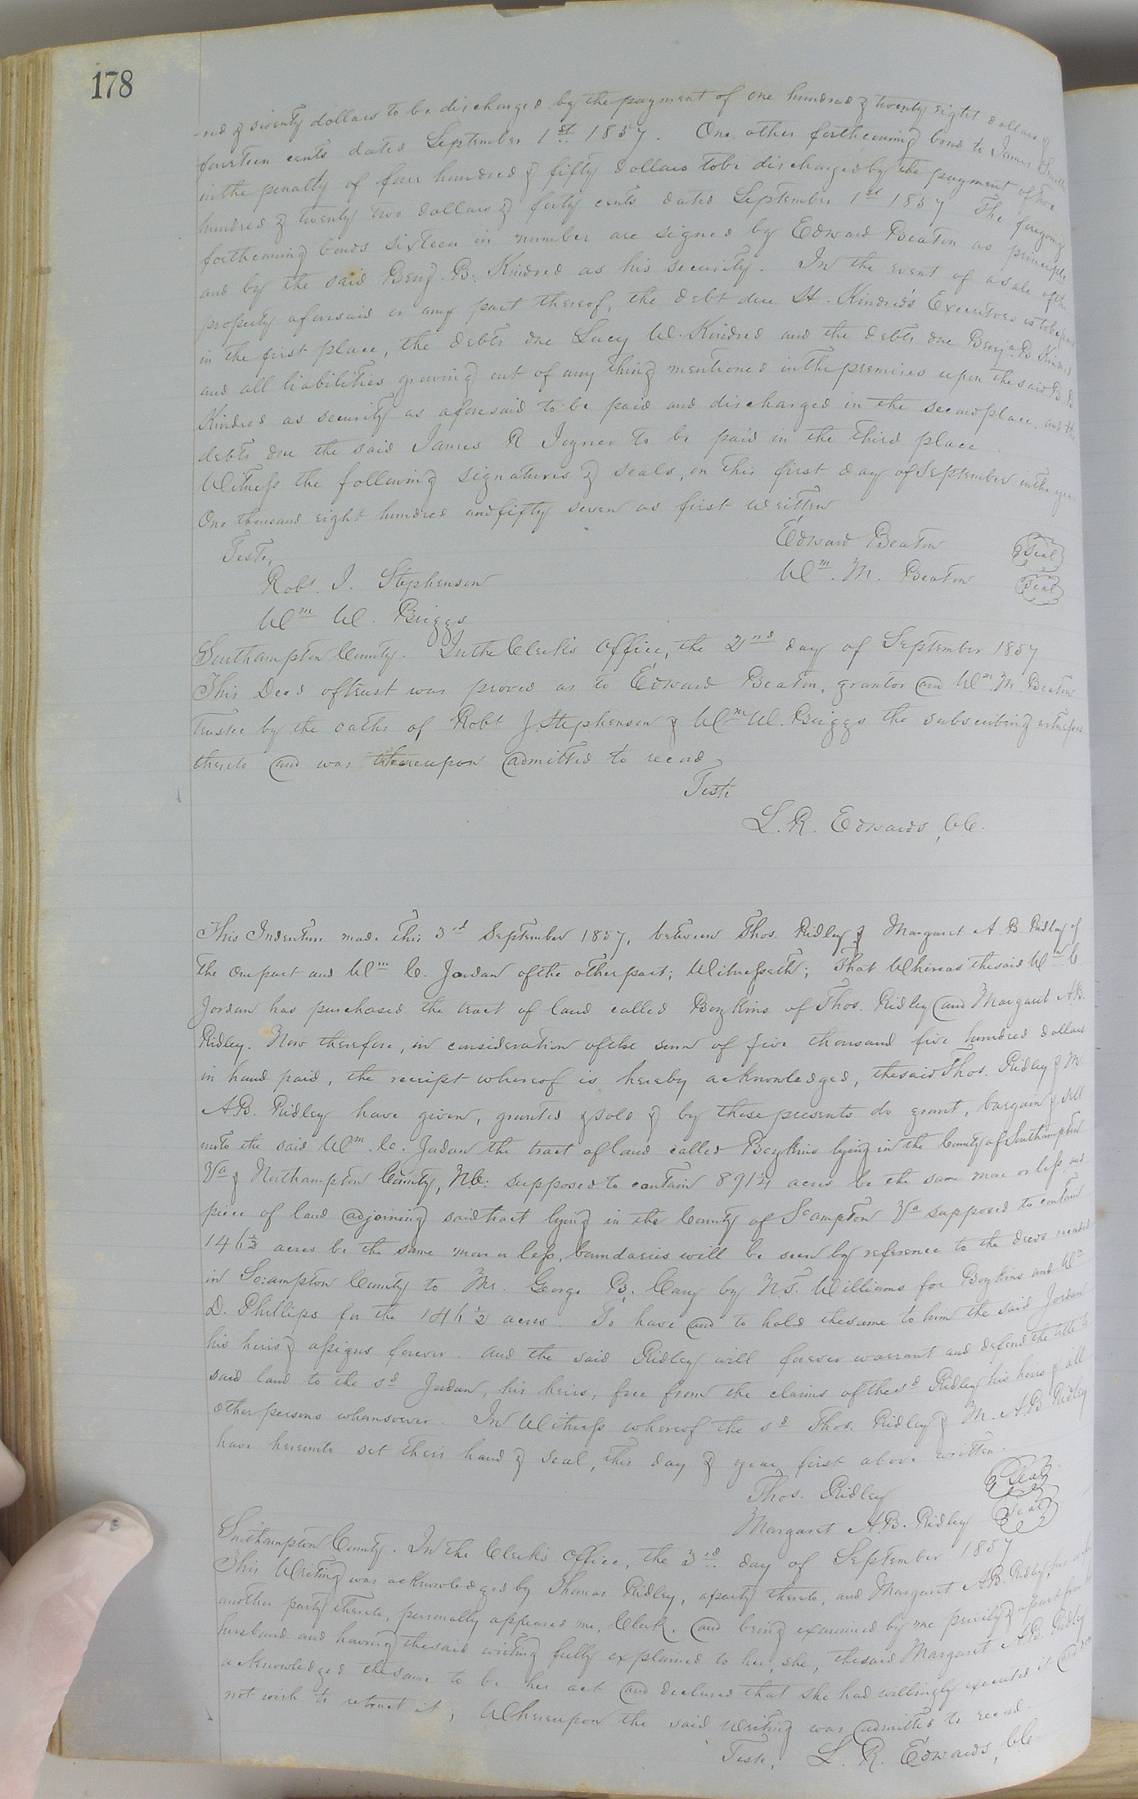 178
-red & seventy dollars to be discharged by the payment of one hundred & twenty eight dollars &
fourteen cents dated September 1st 1857. One other forthcoming bond to James
in the penalty of four hundred & fifty dollars to be discharged by the payment of two
hundred & twenty two dollars & forty cents dated September 1st 1857 The foregoing
forthcoming bonds sixteen in number are signed by Edward Beaton as principle
and by the said Benj. B. Kindred as his security. In the event of a sale of the
property aforesaid or any part thereof, the debt due H. Kindred's Executors is to be paid
in the first place, the debts due Lucy W. Kindred and the debts due Benja. B. Kindred
and all liabilities growing out of any thing mentioned in the premises upon the said B. B.
Kindred as security as aforesaid to be paid and discharged in the second place, and the
debts due the said James R Joyner to be paid in the third place.
Witness the following signatures & seals, on this first day of September in the year
One thousand eight hundred and fifty seven as first written
Edward Beaton Seal
Teste,
Wm. M. Beaton Seal
Robt. J. Stephenson
Wm W. Briggs
Southampton County. In the Clerk's Office, the 2nd day of September 1857
This Deed of trust was proved as to Edward Beaton, grantor and Wm. M. Beaton
trustee by the oaths of Robt J. Stephenson & Wm W. Briggs the subscribing witnesses
thereto and was thereupon admitted to record
Teste
L. R. Edwards, CC.
This Indenture made this 3rd September 1857, between Thos. Ridley & Margaret A B Ridley of
the one part and Wm C. Jordan of the other part; Witnesseth; That Whereas the said Wm C
Jordan has purchased the tract of land called Boykins of Thos. Ridley and Margaret A.B.
Ridley. Now therefore, in consideration of the sum of five thousand five hundred dollars
in hand paid, the receipt whereof is hereby acknowledged, the said Thos. Ridley & M.
A.B. Ridley have given, granted & sold & by these presents do grant, bargain & sell
unto the said Wm. C. Jordan the tract of land called Boykins lying in the County of Southampton
Va & Northampton County, N.C. supposed to contain 891½ acres be the same more or less, and
piece of land adjoining said tract lying in the County of Scampton Va supposed to contain
146½ acres be the same more or less, boundaries will be seen by reference to the deeds recorded
in So:ampton County to Mr. George B. Cary by N.T. Williams for Boykins and Wm
D. Phillips for the 146½ acres. To have and to hold the same to him the said Jordan
his heirs & assigns forever. And the said Ridley will forever warrant and defend the title to
said land to the sd Jordan, his heirs, free from the claims of the sd Ridley his heirs & all
other persons whomsoever. In Witness whereof the sd Thos. Ridley & M. A.B Ridley
have hereunto set their hand & seal, this day & year first above written.
Thos. Ridley Seal
Margaret A.B. Ridley Seal
Southampton County. In the Clerk's Office, the 3rd day of September 1857
This Writing was acknowledged by Thomas Ridley, a party thereto, and Margaret A.B. Ridley, his wife
another party thereto, personally appeared me, Clerk, and being examined by me privily & apart from her
husband and having the said writing fully explained to her, she, the said Margaret A.B. Ridley
acknowledged the same to be her act and declared that she had willingly executed it and
not wish to retract it, Whereupon the said writing was admitted to record.
Teste, L. R. Edwards, CC